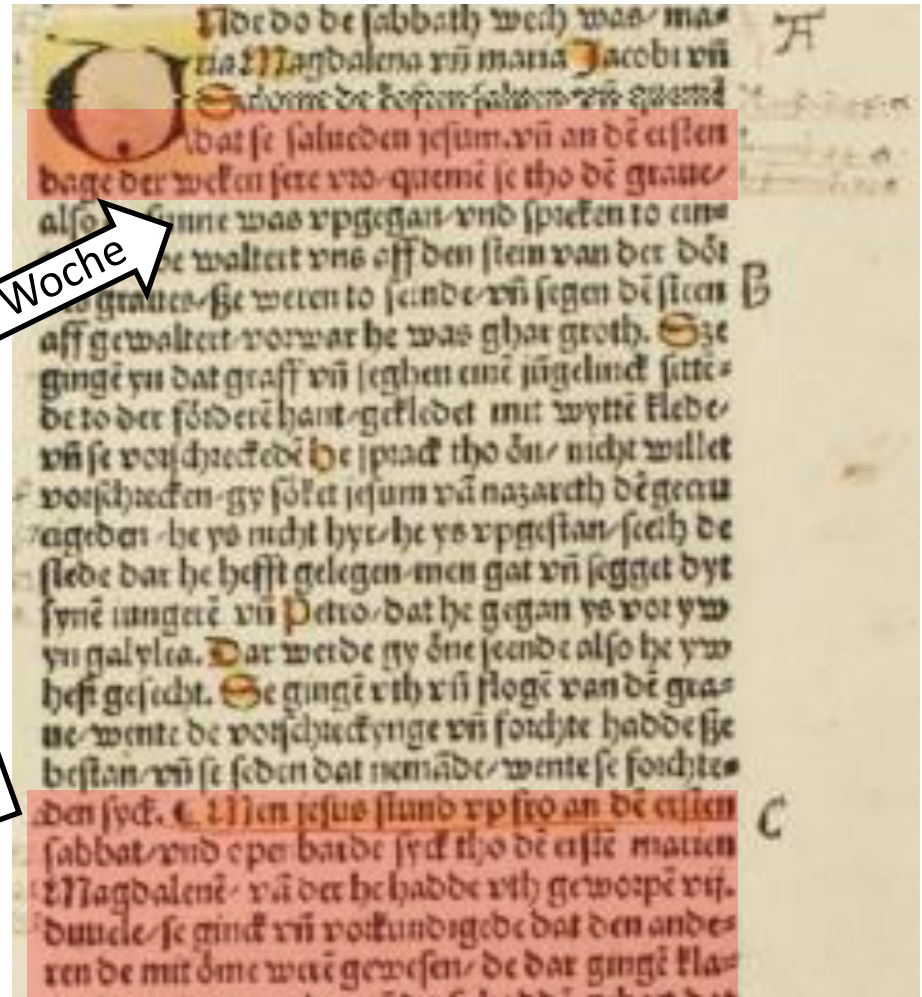 Unde do de sabbath wech was/ ma⸗
ria Magdalena vñ maria Jacobi vñ
Salome de kofften saluen vñ quemē
dat se salueden jesum. vñ an dē ersten
dage der weken sere vro quemē se tho dē graue/
also sunne was vpgegan/ vnd spreken to ein⸗
Woche
we waltert vns aff den stein van der dör
graues/ ße weren to seende/ vñ segen dē steen
B
aff gewaltert vorwar he was ghar groth. Sze
gingē yn dat graff vñ seghen einē jügelinck sittē⸗
de to der förderē hant/ gekledet mit wyttē klede/
vñ se vorschreckedē he sprack tho ön/ nicht willet
vorschrecken gy söket jesum vā nazareth dē gecru
ageden he ys nicht hyr/ he ys vpgestan/ seeth de
stede dar he hefft gelegen men gat vñ segget dyt
synē iungerē vñ Petro/ dat he gegan ys vor yw
yn galylea. Dar werde gy öne seende also he yw
heft gesecht. Se gingē vth vñ flogē van dē gra⸗
ue/ wente de vorschreckynge vñ forchte hadde ße
bestan/ vñ se seden dat nemāde/ wente se forchte⸗
den syck. ¶ Men jesus stund vp fro an dē ersten
C
sabbat/ vnd openbarde syck tho dē erstē marien
Magdalenē/ vā der he hadde vth geworpē vij.
duuele/ se ginck vñ vorkundigede dat den ande⸗
ren de mit öme werē gewesen/ de dar gingē kla⸗